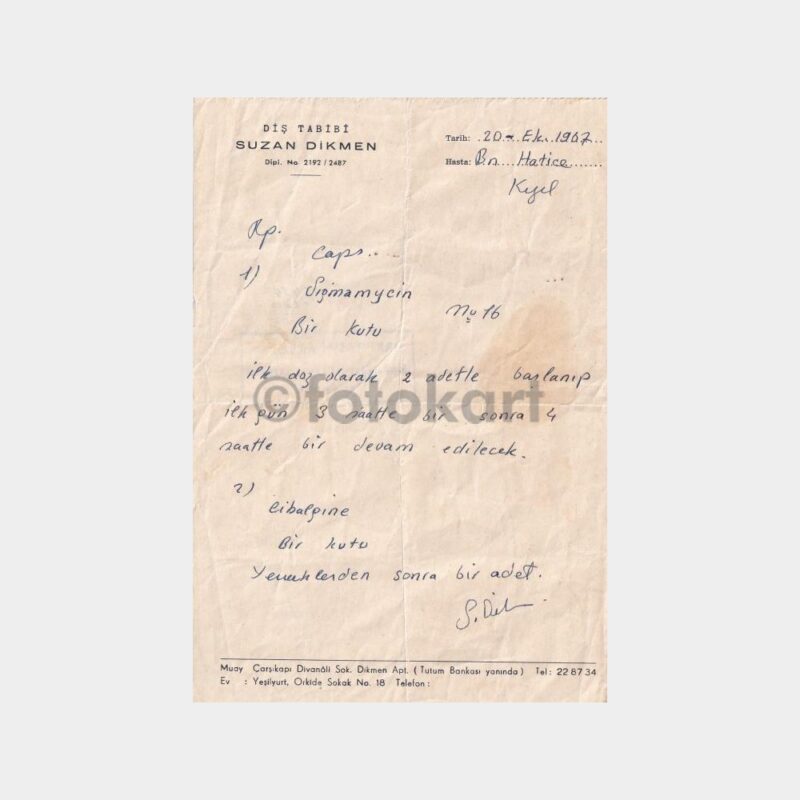 DİŞ TABİBİ
SUZAN DİKMEN
Dipl. No 2192 / 2487
Tarih: 20 - Ek. 1967
Hasta: Bn. Hatice
Rp.
Caps.
1)
Sigmamycin
No 16
Bir kutu
ilk doz olarak 2 adetle başlanıp
©fotokart
ilk gün 3 saatte bir sonra 4
saatte bir devam edilecek.
2)
Cibalgine
Bir kutu
Yemeklerden sonra bir adet.
Muay Çarşıkapı Divanâli Sok. Dikmen Apt. ( Tutum Bankası yanında ) Tel : 22 87 34
Ev : Yeşilyurt, Orkide Sokak No. 18 Telefon :